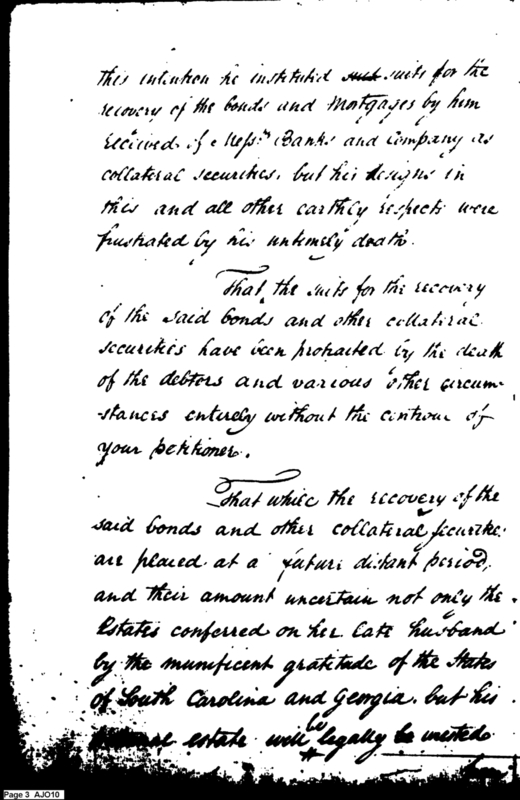 this intention he instituted such suits for the
recovery of the bonds and Mortgages by him
received of Messrs Banks and Company as
collateral securities, but his designs in
this and all other earthly respects were
frustrated by his untimely death.
That the suits for the recovery
of the said bonds and other collateral
securities have been protracted by the death
of the debtors and various other circum-
-stances entirely without the controul of
your petitioner.
That while the recovery of the
said bonds and other collateral securities
are placed at a future distant period,
and their amount uncertain not only the
Estates conferred on her late husband
by the munificent gratitude of the States
of South Carolina and Georgia, but his
estate will be legally be wrested
from
Page 3 AJO10